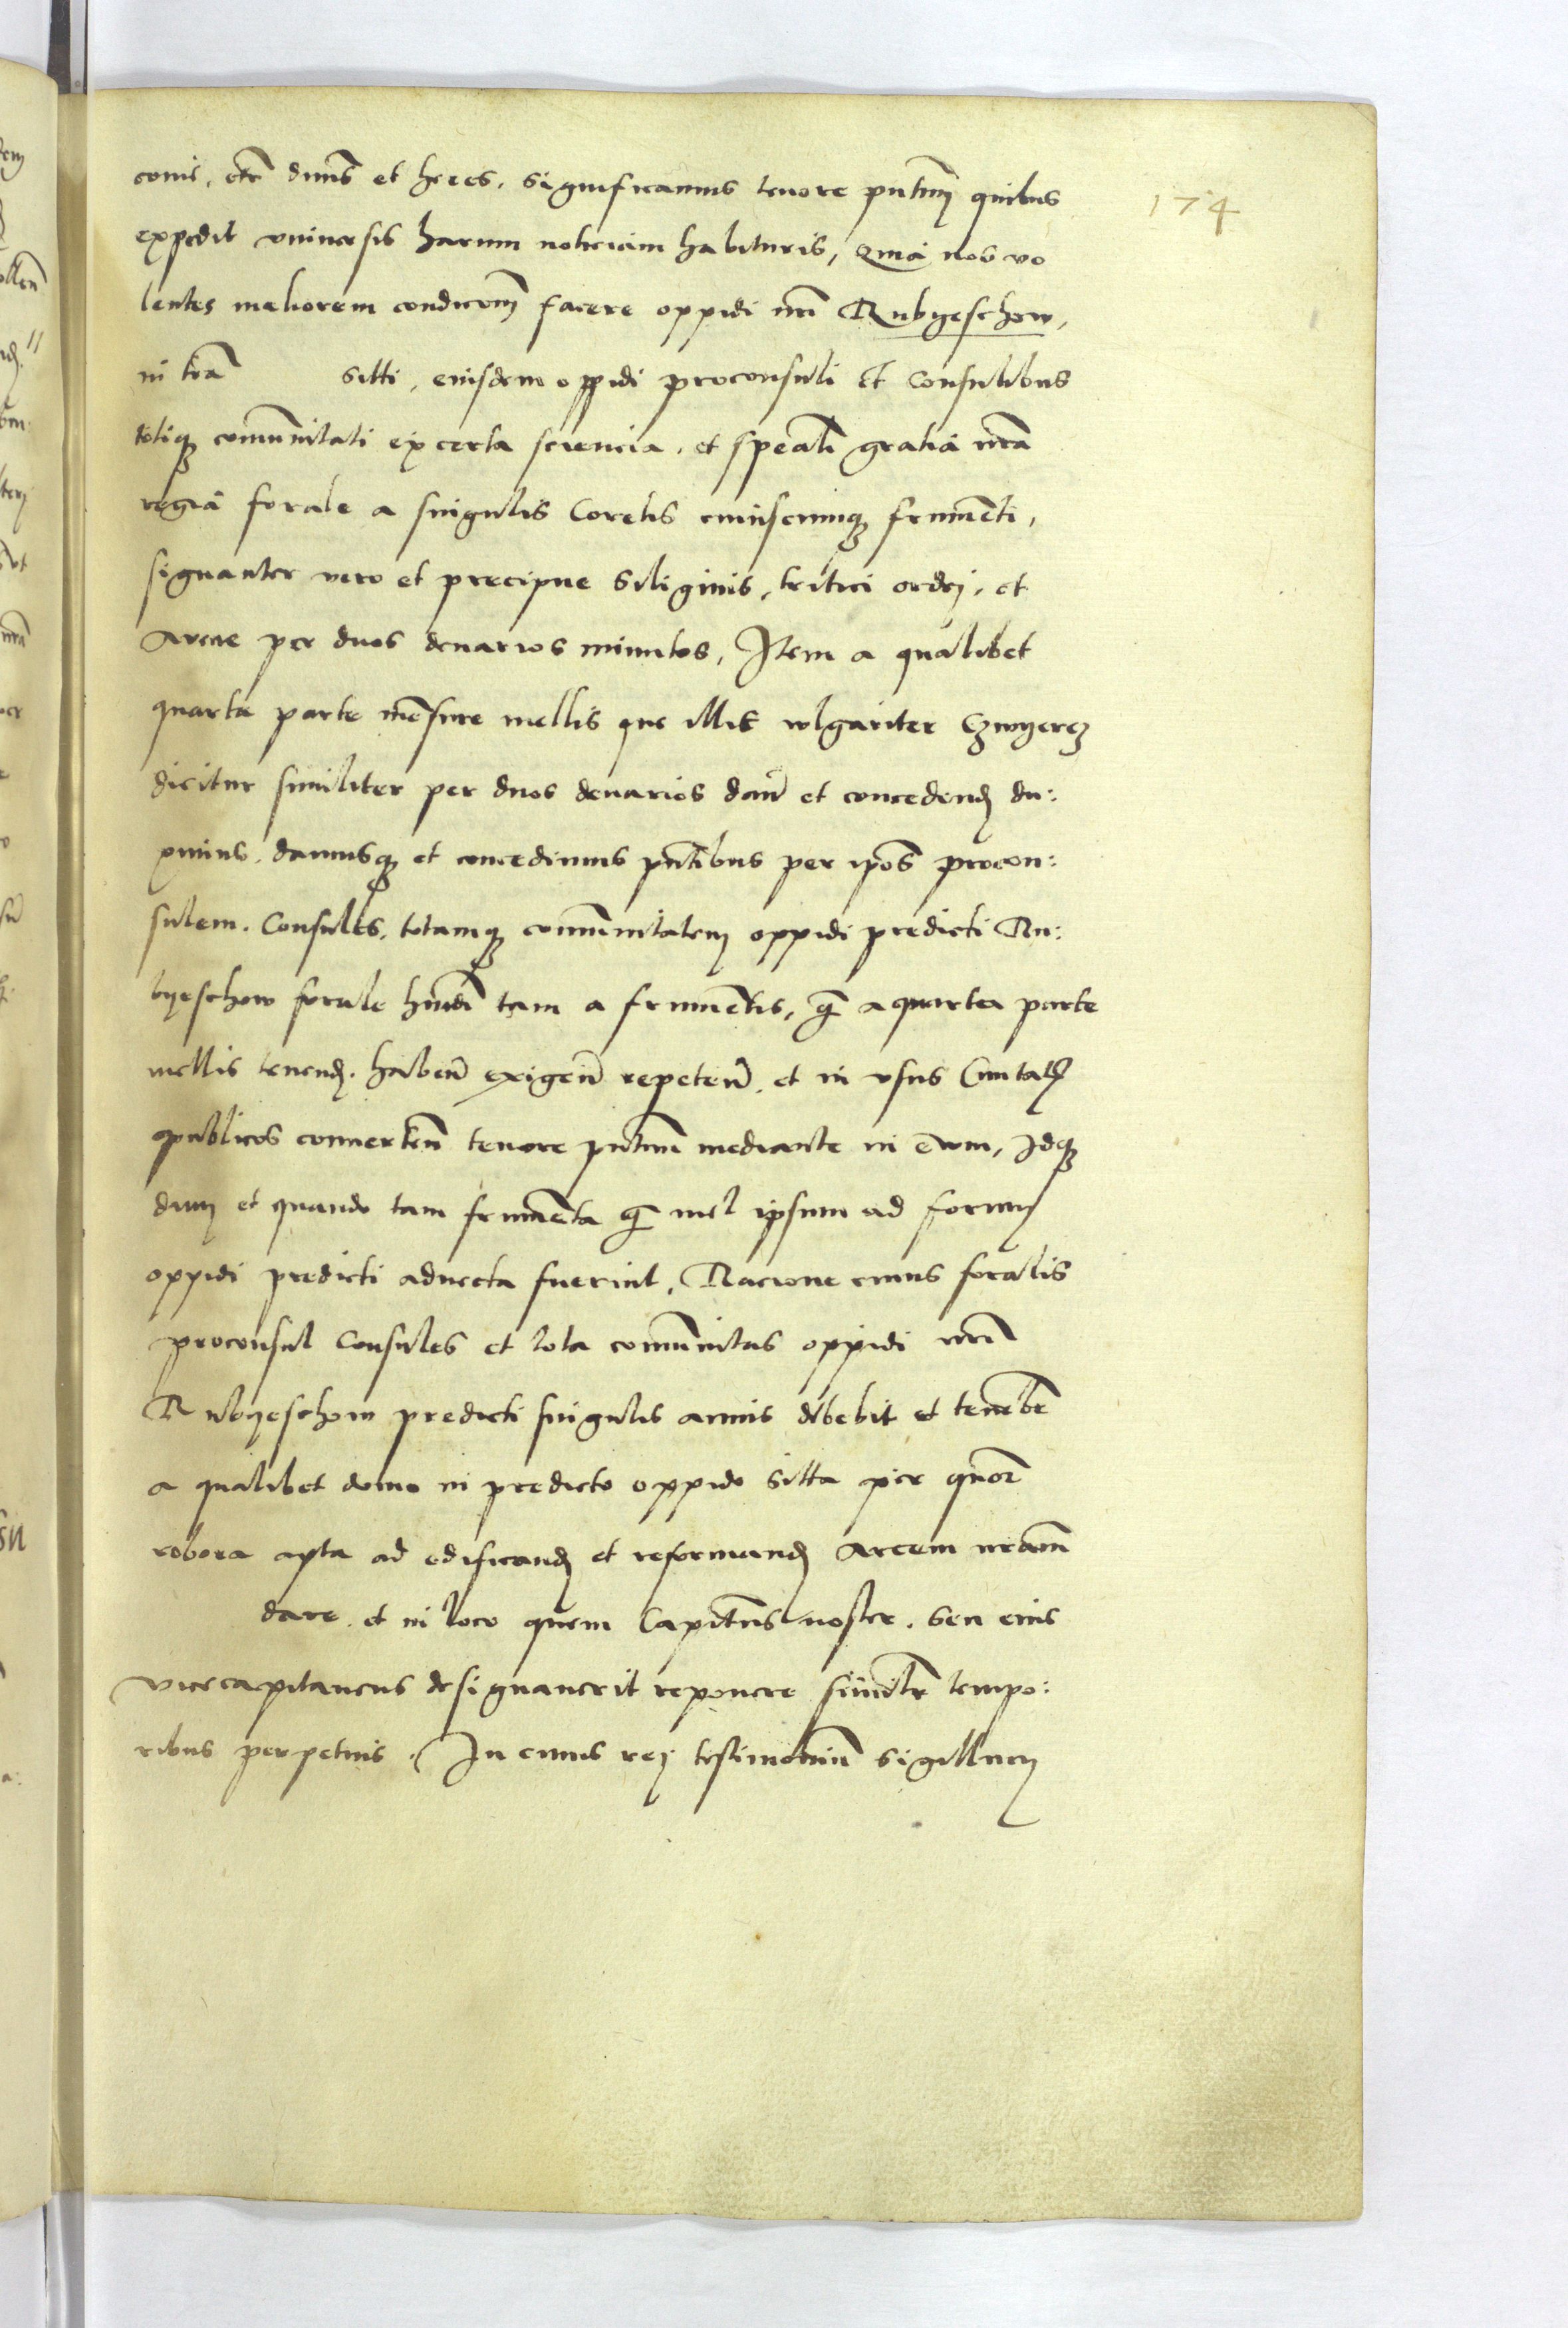 conie, etc̃ dnus et heres, significamus tenore pntium quibus
174
expedit vniuersis harum noticiam habituris, Quia nos vo
lentes meliorem condicom̃ facere oppidi nri Rubyeschow,
in tra sitti, eiusdem oppidi proconsuli et consulibus
totiq; comũnitati ex certa sciencia, et speali gratia nra
regia forale a singulis Coretis cuiuscumq; frumẽti,
signanter vero et precipue siliginis, tritici ordej, et
Avene per duos denarios minutos, Item a qualibet
quarta parte mẽsure mellis que illic wlgariter Czwyercz
dicitur similiter per duos denarios dañ et concedend du:
ximus, damusq; et concedimus pntibus per ipos procon:
sulem, Consules, totamq; comũnitatem oppidi predicti Ru:
byeschow forale hmõi tam a frumẽtis, q̃ a quarta parte
mellis tenend, habeñ exigeñ repeteñ, et in vsus Ciuitatis
publicos conuerteñ tenore pntium mediante in ewm, Idq;
dum et quando tam frumẽta q̃ mel ipsum ad forum
oppidi predicti aduecta fuerint, Racione cuius foralis
proconsul Consules et tota comũnitas oppidi nri
Rubyeschow predicti singulis annis debebit et tenebr̃
a qualibet domo in predicto oppido sitta per quor̃
robora apta ad edificand et reformand Arcem nram̃
dare, et in loco quem Capitñs noster, seu eius
vicecapitaneus designauerit reponere similr̃ tempo:
ribus perpetuis. In cuius rej testimoniũ sigillum